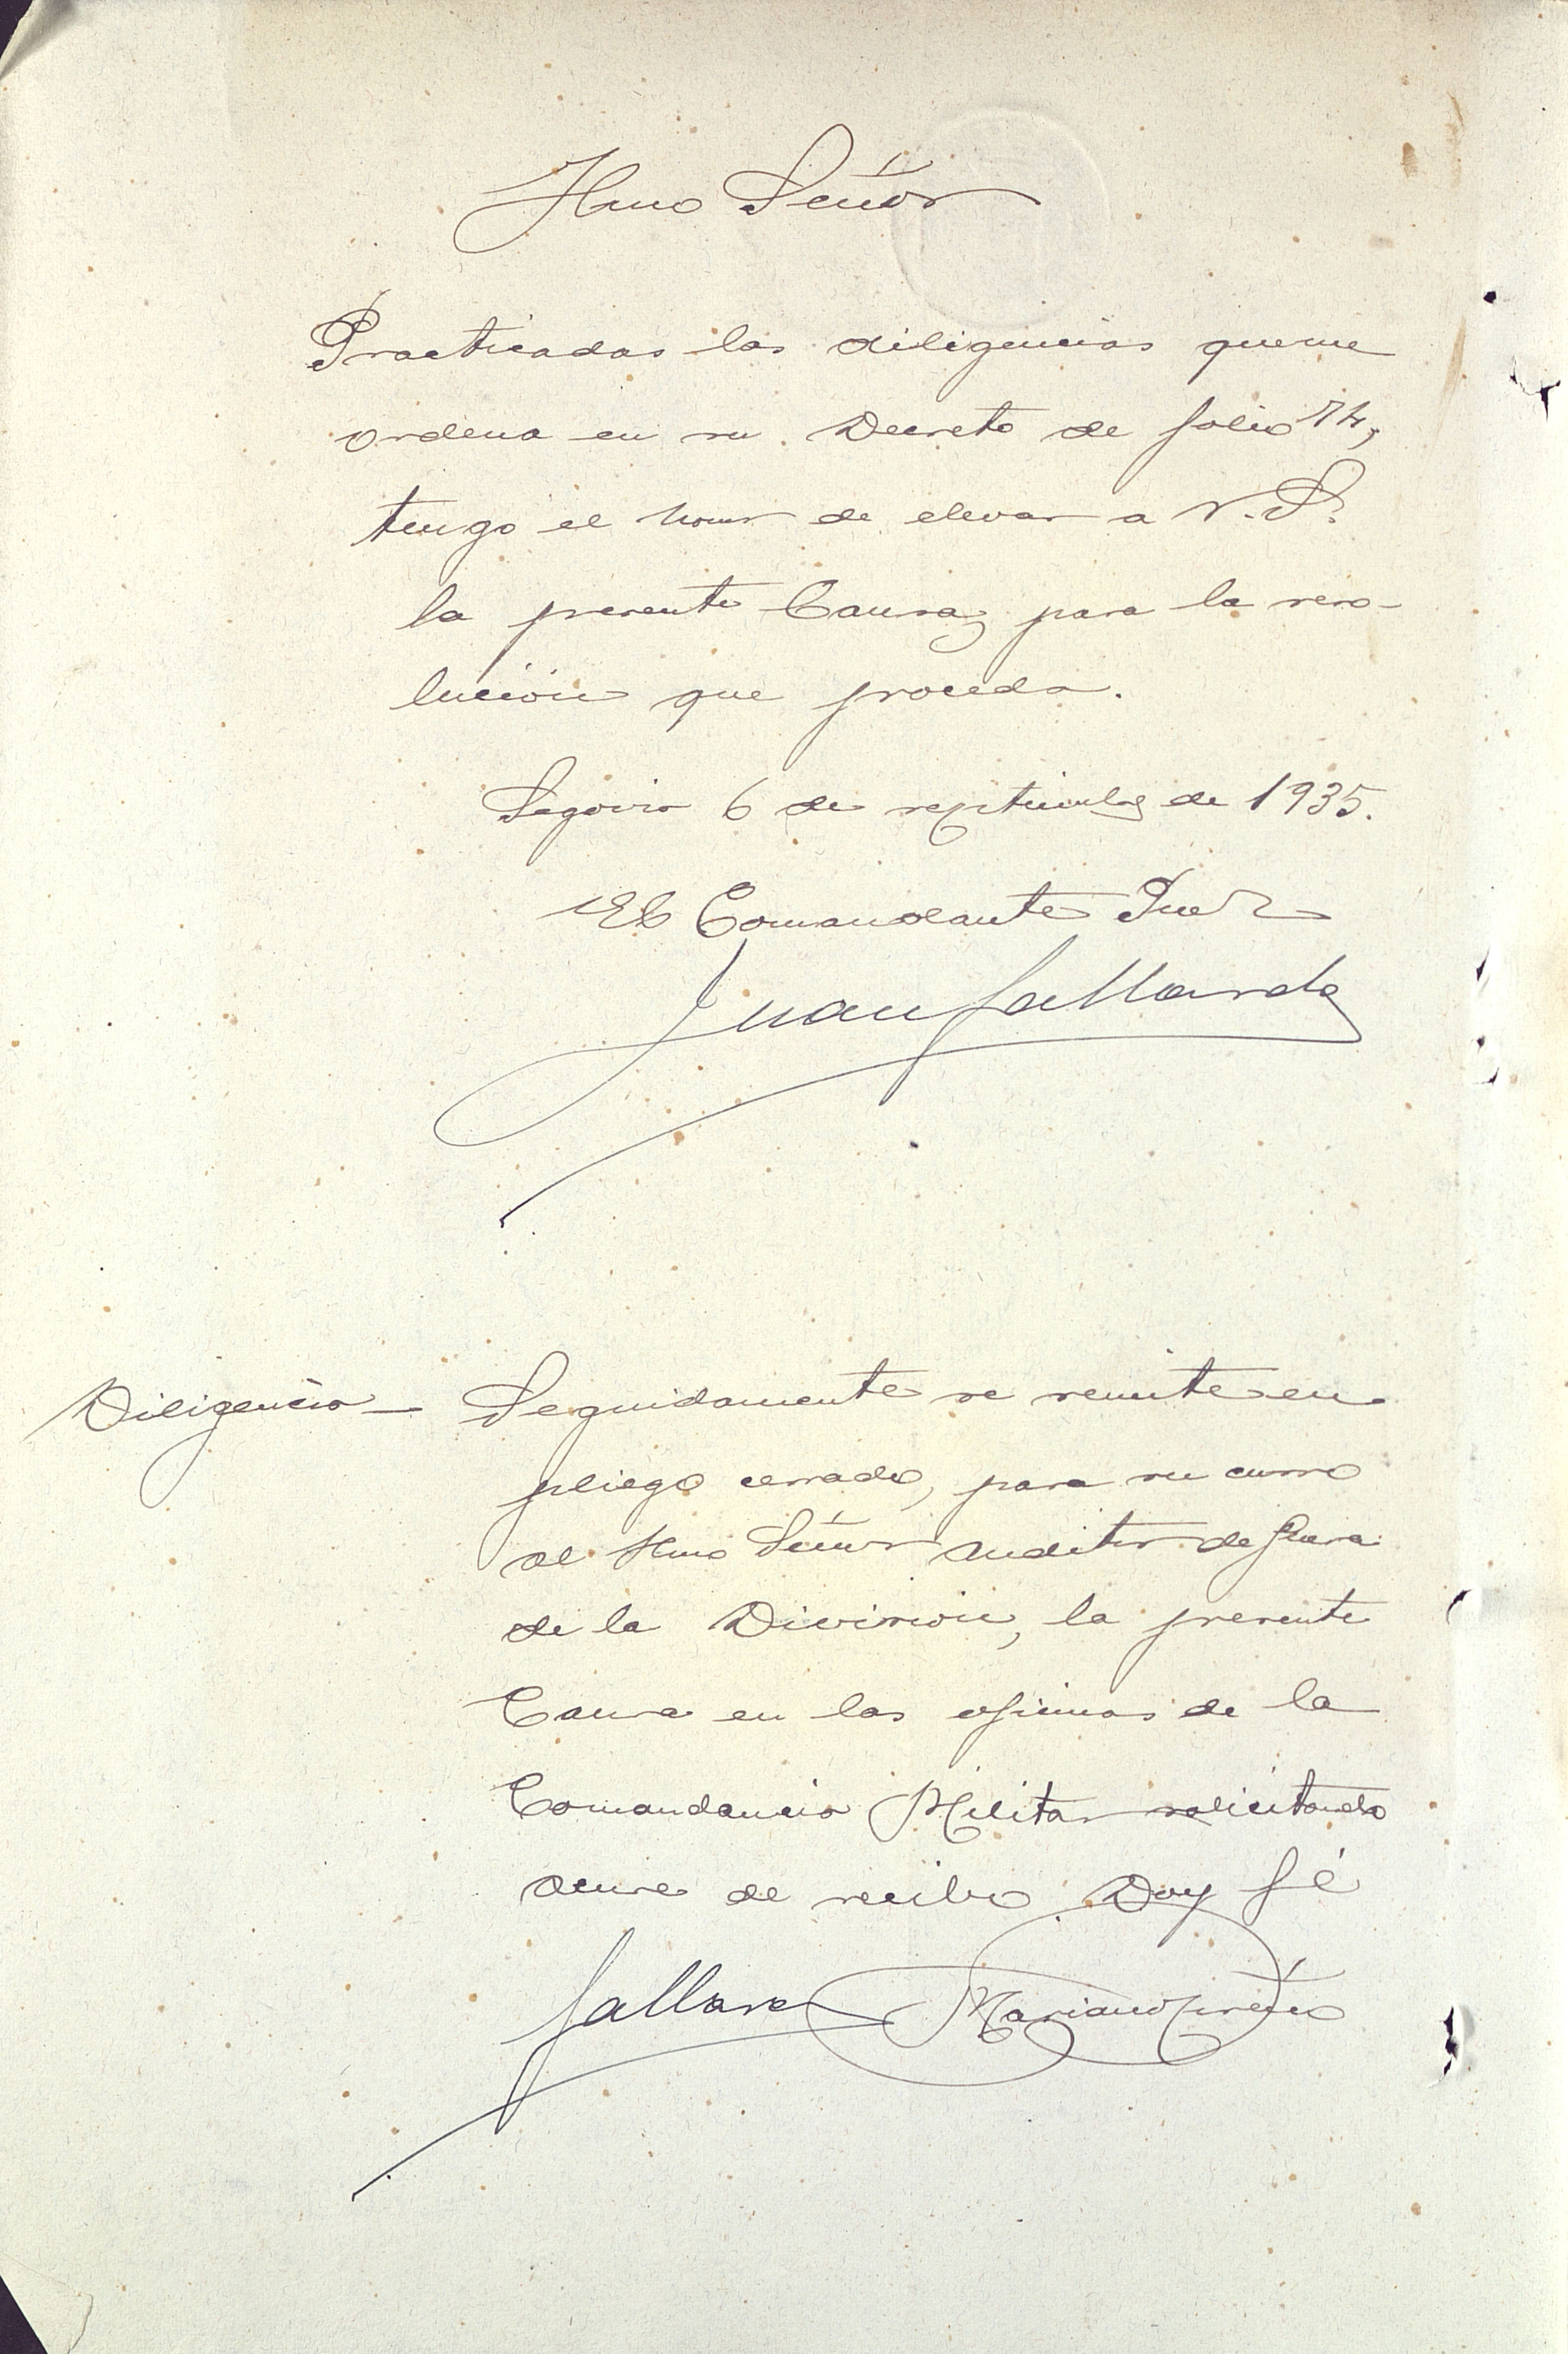 Ilmo Señor
Practicadas las diligencias que me
ordena en su Decreto de folio 74,
tengo el honor de elevar a V.S.
la presente Causa, para la reso-
lución que proceda.
Segovia 6 de septiembre de 1935.
El Comandante Juez
Juan Gallardo
Diligencia — Seguidamente se remite en
pliego cerrado, para su curso
al Ilmo Señor Auditor de Guerra
de la División, la presente
Causa en las oficinas de la
Comandancia Militar solicitando
acuse de recibo Doy fé
Gallardo Mariano